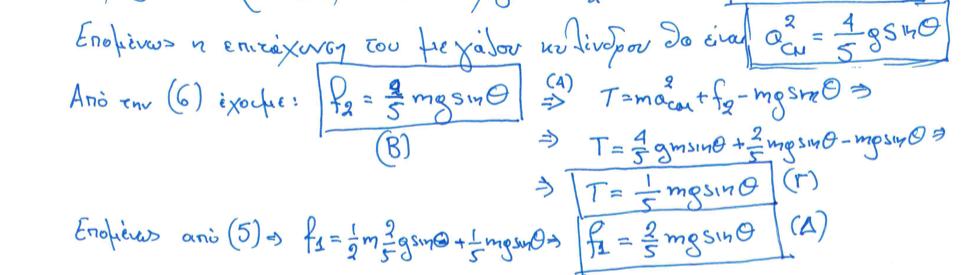 Επομένως η επιτάχυνση του μεγάλου κυλίνδρου θα είναι a²_CM = 4/5 g sinθ
Από την (6) έχουμε: f₂ = 2/5 mg sinθ (B) (A) ⇒ T = ma²_CM + f₂ − mg sinθ ⇒
⇒ T = 4/5 gm sinθ + 2/5 mg sinθ − mg sinθ ⇒
⇒ T = 1/5 mg sinθ (Γ)
Επομένως από (5) ⇒ f₁ = 1/2 m 2/5 g sinθ + 1/5 mg sinθ ⇒ f₁ = 2/5 mg sinθ (Δ)